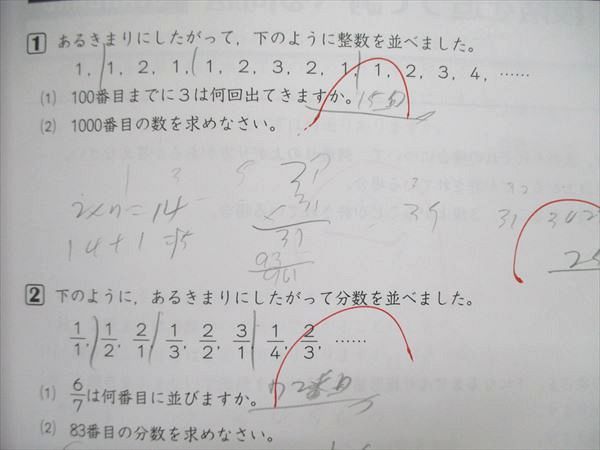 1 あるきまりにしたがって，下のように整数を並べました。
1，1，2，1，1，2，3，2，1，1，2，3，4，……
(1) 100番目までに3は何回出てきますか。15回
(2) 1000番目の数を求めなさい。
2×n=14
14+1=15
31
×31
31
93
961
2 下のように，あるきまりにしたがって分数を並べました。
1/1，1/2，2/1，1/3，2/2，3/1，1/4，2/3，……
(1) 6/7は何番目に並びますか。72番目
(2) 83番目の分数を求めなさい。